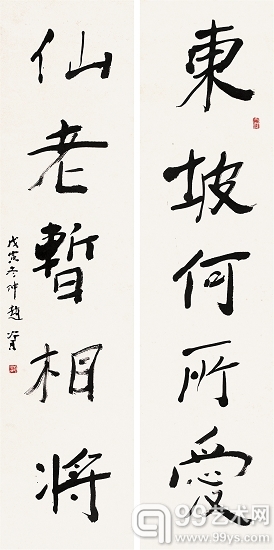 東坡何所愛
仙老暫相將
戊寅冬仲趙冷月
99艺术网
www.99ys.com